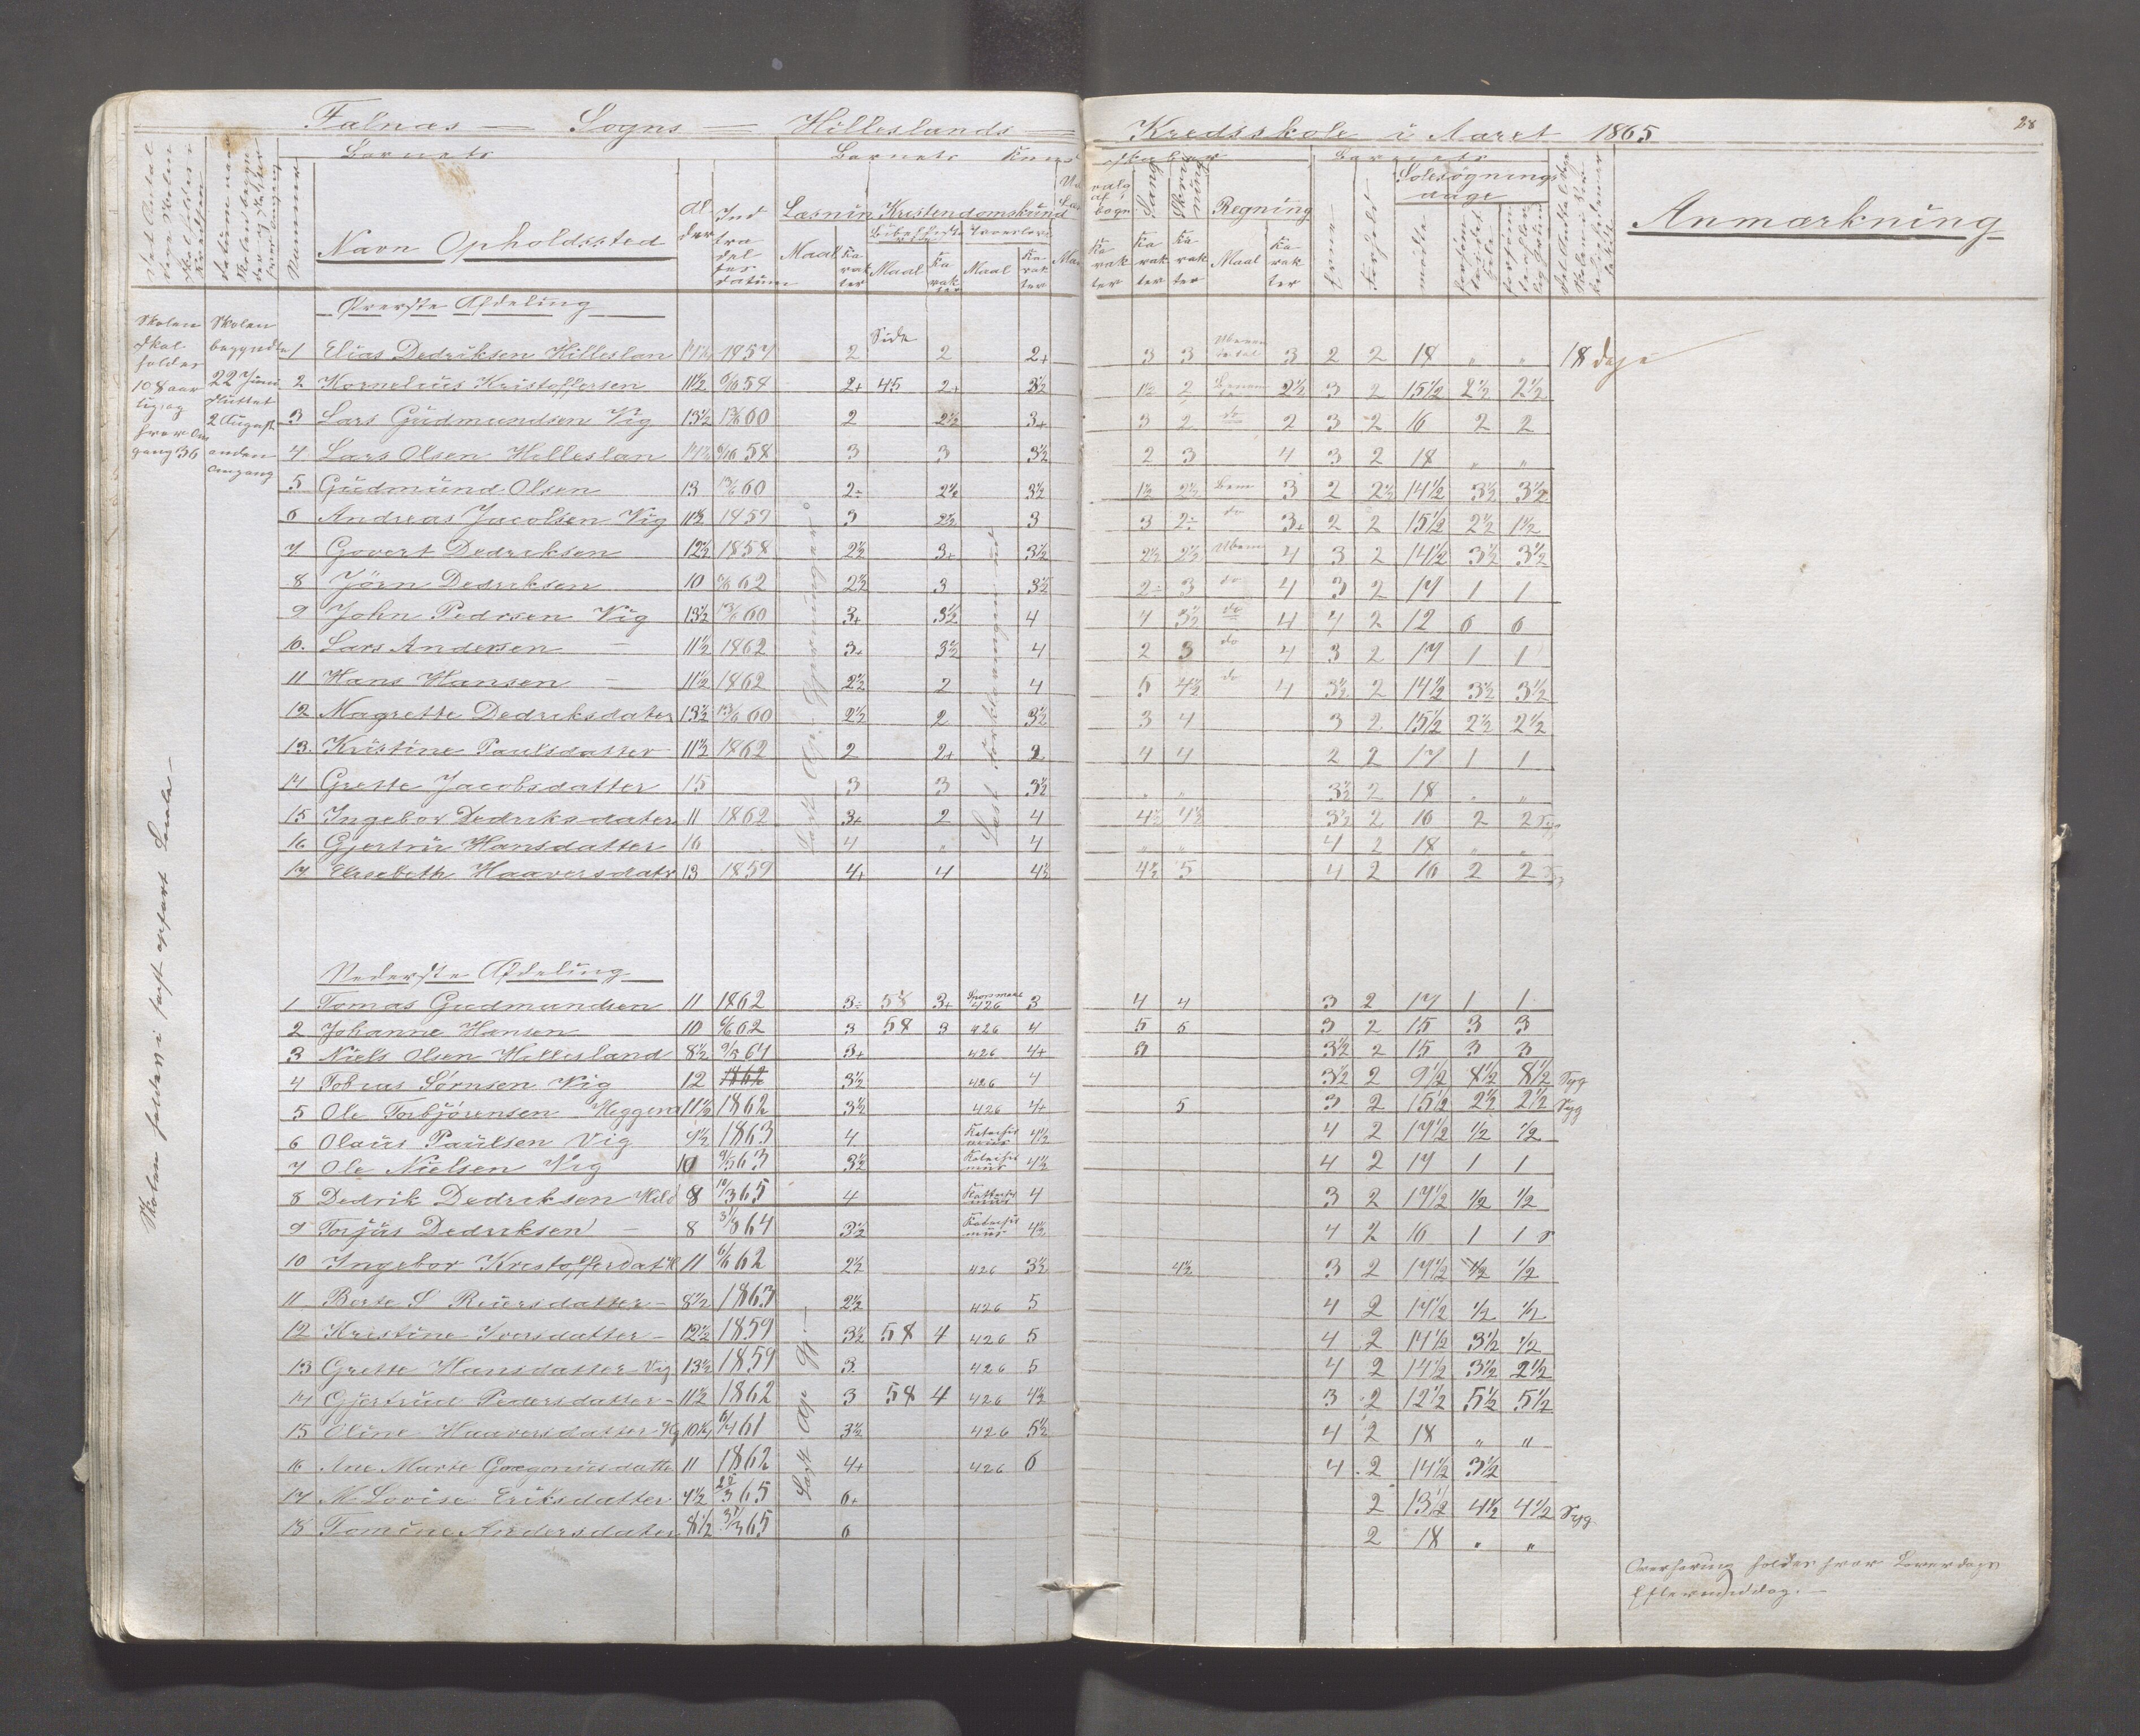 Falnæs — Sogns — Hilleslands — Kredsskole i Aaret 1865
28
Barnets
Barnets Kund skaber
Barnets
Nummer
Navn Opholdssted
Al der
Ind tra del ses datum
Læsnin
Kristendomskund
Maal
Ka rak ter
Bibelhistorie
Maal
Ka rak ter
Troeslære
Maal
Ka rak ter
Ka rak ter
Sang
Ka rak ter
Skriv ning
Ka rak ter
Regning
Maal
Ka rak ter
Evne
Forhold
Solesøgnings dage
mødte
Anmærkning
Øverste Afdeling
Skolen skal holdes 108 aar
hver Om gang 36
Skolen begyndte 22 Juni sluttet 2 August anden Omgang
Side
1 Elias Dedriksen Hilleslan 14½ 1857 2 2 2+ 3 3 3 2 2 18 " " 18 dage
2 Kornelius Kristoffersen 11½ 58 2+ 45 2+ 3½ 1½ 2 2½ 3 2 15½ 2½ 2½
3 Lars Gudmundsen Vig 13½ 60 2 2½ 3+ 3 2 do 2 3 2 16 2 2
4 Lars Olsen Hilleslan 14½ 58 3 3 3½ 2 3 4 3 2 18 " "
5 Gudmund Olsen 13 60 2÷ 2½ 3½ 1½ 2½ Ben 3 2 2½ 14½ 3½ 3½
6 Andreas Jacobsen Vig 11½ 1859 3 2½ 3 3 2÷ do 3+ 2 2 15½ 2½ 1½
7 Govert Dedriksen 12½ 1858 2½ 3+ 3½ 2½ 2½ Uben 4 3 2 14½ 3½ 3½
8 Jørn Dedriksen 10 62 2½ 3 3½ 2÷ 3 do 4 3 2 17 1 1
9 John Pedrsen Vig 13½ 60 3+ 3½ 4 4 3½ do 4 4 2 12 6 6
10. Lars Andersen — 11½ 1862 3+ 3½ 4 2 3 do 4 3 2 17 1 1
11 Hans Hansen — 11½ 1862 2½ 2 4 5 4½ do 4 3½ 2 14½ 3½ 3½
12 Magrette Dedriksdater 13½ 60 2½ 2 3½ 3 4 3 2 15½ 2½ 2½
13. Kristine Paulsdatter 11½ 1862 2 2+ 2 4 4 2 2 17 1 1
14 Grette Jacobsdatter 15 3 3 3½ " " 3½ 2 18 " "
15 Ingebor Dedriksdater 11 1862 3+ 2 4 4½ 4½ 3½ 2 16 2 2 Syg
16 Gjertrur Hansdatter 16 4 " 4 " " 4 2 18 " "
17 Elisabeth Haaversdatr 13 1859 4+ 4 4½ 4½ 5 4 2 16 2 2
Nederste Afdeling
1 Tomas Gudmundsen 11 1862 3÷ 58 3+ 426 3 4 4 3 2 17 1 1
2 Johanne Hansen 10 62 3 58 3 426 4 5 5 3 2 15 3 3
3 Niels Olsen Hillesland 8½ 9/5 64 3+ 426 4+ 3 3½ 2 15 3 3
4 Tobias Sørnsen Vig 12 1862 3½ 426 4 3½ 2 9½ 8½ 8½ Syg
5 Ole Torbjørensen Heggem 11½ 1862 3½ 426 4+ 5 3 2 15½ 2½ 2½ Syg
6 Olaus Paulsen Vig 9½ 1863 4 Katechis mus 4½ 4 2 17½ ½ ½
7 Ole Nielsen Vig 10 9/5 63 3½ Katechis mus 4½ 4 2 17 1 1
8 Dedrik Dedriksen Hild 8 10/3 65 4 Kattechis mus 4 3 2 17½ ½ ½
9 Torjus Dedriksen — 8 31/3 64 3½ Katechis mus 4½ 4 2 16 1 1
10 Ingebor Kristofferdat 11 6/6 62 2½ 426 3½ 4½ 3 2 17½ ½ ½
11 Berte S Reiersdatter — 8½ 1863 2½ 426 5 4 2 17½ ½ ½
12 Kristine Iversdatter — 12½ 1859 3½ 58 4 426 5 4 2 14½ 3½ ½
13 Grette Hansdatter Vig 13½ 1859 3 426 5 4 2 14½ 3½ 2½
14 Gjertrud Pedersdatter — 11½ 1862 3 58 4 426 4½ 3 2 12½ 5½ 5½
15 Oline Haaversdatter Vig 10½ 6/4 61 3½ 426 5½ 4 2 18 " "
16 Ane Marie Gregoriusdatte 11 1862 4+ 426 6 4 2 14½ 3½
17 M Lovise Eriksdatter 7½ 25/3 65 6+ 2 13½ 4½ 4½ Syg
18 Tomine Andersdater 8½ 31/3 65 6 2 18 " "
Overhøring holdes hver Løverdags Eftermiddag. —
Læst Ap. Gjerninger
Læst Forklaringen ud
Læst Ap Gj. —